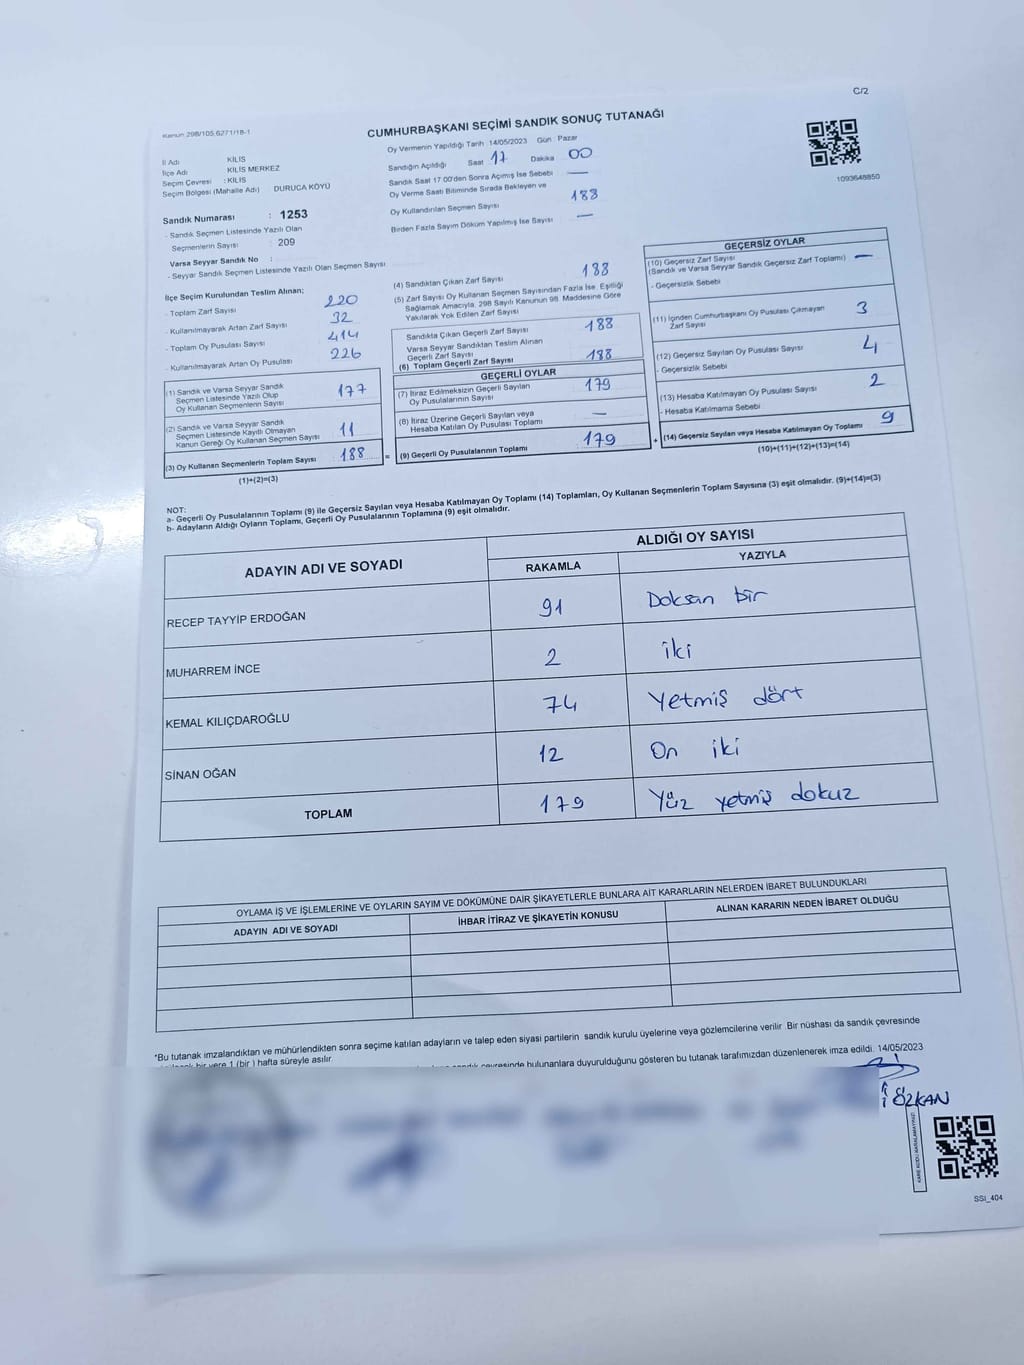 C/2
Kanun 298/105,6271/18-1
CUMHURBAŞKANI SEÇİMİ SANDIK SONUÇ TUTANAĞI
İl Adı KİLİS
İlçe Adı KİLİS MERKEZ
Seçim Çevresi : KİLİS
Seçim Bölgesi (Mahalle Adı) DURUCA KÖYÜ
Sandık Numarası : 1253
- Sandık Seçmen Listesinde Yazılı Olan
Seçmenlerin Sayısı : 209
Varsa Seyyar Sandık No :
- Seyyar Sandık Seçmen Listesinde Yazılı Olan Seçmen Sayısı
Oy Vermenin Yapıldığı Tarih 14/05/2023 Gün Pazar
Sandığın Açıldığı Saat 17 Dakika 00
Sandık Saat 17.00'den Sonra Açılmış İse Sebebi —
Oy Verme Saati Bitiminde Sırada Bekleyen ve
Oy Kullandırılan Seçmen Sayısı 188
Birden Fazla Sayım Döküm Yapılmış İse Sayısı —
1093648850
İlçe Seçim Kurulundan Teslim Alınan;
- Toplam Zarf Sayısı 220
- Kullanılmayarak Artan Zarf Sayısı 32
- Toplam Oy Pusulası Sayısı 414
- Kullanılmayarak Artan Oy Pusulası 226
(1) Sandık ve Varsa Seyyar Sandık
Seçmen Listesinde Yazılı Olup
Oy Kullanan Seçmenlerin Sayısı 177
(2) Sandık ve Varsa Seyyar Sandık
Seçmen Listesinde Kayıtlı Olmayan
Kanun Gereği Oy Kullanan Seçmen Sayısı 11
(3) Oy Kullanan Seçmenlerin Toplam Sayısı 188 =
(1)+(2)=(3)
(4) Sandıktan Çıkan Zarf Sayısı 188
(5) Zarf Sayısı Oy Kullanan Seçmen Sayısından Fazla İse, Eşitliği
Sağlamak Amacıyla, 298 Sayılı Kanunun 98. Maddesine Göre
Yakılarak Yok Edilen Zarf Sayısı
Sandıkta Çıkan Geçerli Zarf Sayısı 188
Varsa Seyyar Sandıktan Teslim Alınan
Geçerli Zarf Sayısı
(6) Toplam Geçerli Zarf Sayısı 188
GEÇERLİ OYLAR
(7) İtiraz Edilmeksizin Geçerli Sayılan
Oy Pusulalarının Sayısı 179
(8) İtiraz Üzerine Geçerli Sayılan veya
Hesaba Katılan Oy Pusulası Toplamı —
(9) Geçerli Oy Pusulalarının Toplamı 179 +
GEÇERSİZ OYLAR
(10) Geçersiz Zarf Sayısı
(Sandık ve Varsa Seyyar Sandık Geçersiz Zarf Toplamı) —
- Geçersizlik Sebebi
(11) İçinden Cumhurbaşkanı Oy Pusulası Çıkmayan
Zarf Sayısı 3
(12) Geçersiz Sayılan Oy Pusulası Sayısı 4
- Geçersizlik Sebebi
(13) Hesaba Katılmayan Oy Pusulası Sayısı 2
- Hesaba Katılmama Sebebi
(14) Geçersiz Sayılan veya Hesaba Katılmayan Oy Toplamı 9
(10)+(11)+(12)+(13)=(14)
NOT:
a- Geçerli Oy Pusulalarının Toplamı (9) ile Geçersiz Sayılan veya Hesaba Katılmayan Oy Toplamı (14) Toplamları, Oy Kullanan Seçmenlerin Toplam Sayısına (3) eşit olmalıdır. (9)+(14)=(3)
b- Adayların Aldığı Oyların Toplamı, Geçerli Oy Pusulalarının Toplamına (9) eşit olmalıdır.
ADAYIN ADI VE SOYADI
ALDIĞI OY SAYISI
RAKAMLA YAZIYLA
RECEP TAYYİP ERDOĞAN 91 Doksan bir
MUHARREM İNCE 2 iki
KEMAL KILIÇDAROĞLU 74 Yetmiş dört
SİNAN OĞAN 12 On iki
TOPLAM 179 Yüz yetmiş dokuz
OYLAMA İŞ VE İŞLEMLERİNE VE OYLARIN SAYIM VE DÖKÜMÜNE DAİR ŞİKAYETLERLE BUNLARA AİT KARARLARIN NELERDEN İBARET BULUNDUKLARI
ADAYIN ADI VE SOYADI İHBAR İTİRAZ VE ŞİKAYETİN KONUSU ALINAN KARARIN NEDEN İBARET OLDUĞU
*Bu tutanak imzalandıktan ve mühürlendikten sonra seçime katılan adayların ve talep eden siyasi partilerin sandık kurulu üyelerine veya gözlemcilerine verilir. Bir nüshası da sandık çevresinde
bir yere 1 (bir) hafta süreyle asılır.
sandık çevresinde bulunanlara duyurulduğunu gösteren bu tutanak tarafımızdan düzenlenerek imza edildi. 14/05/2023
ÖZKAN
KARE KODU KARALAMAYINIZ!
SSI_404